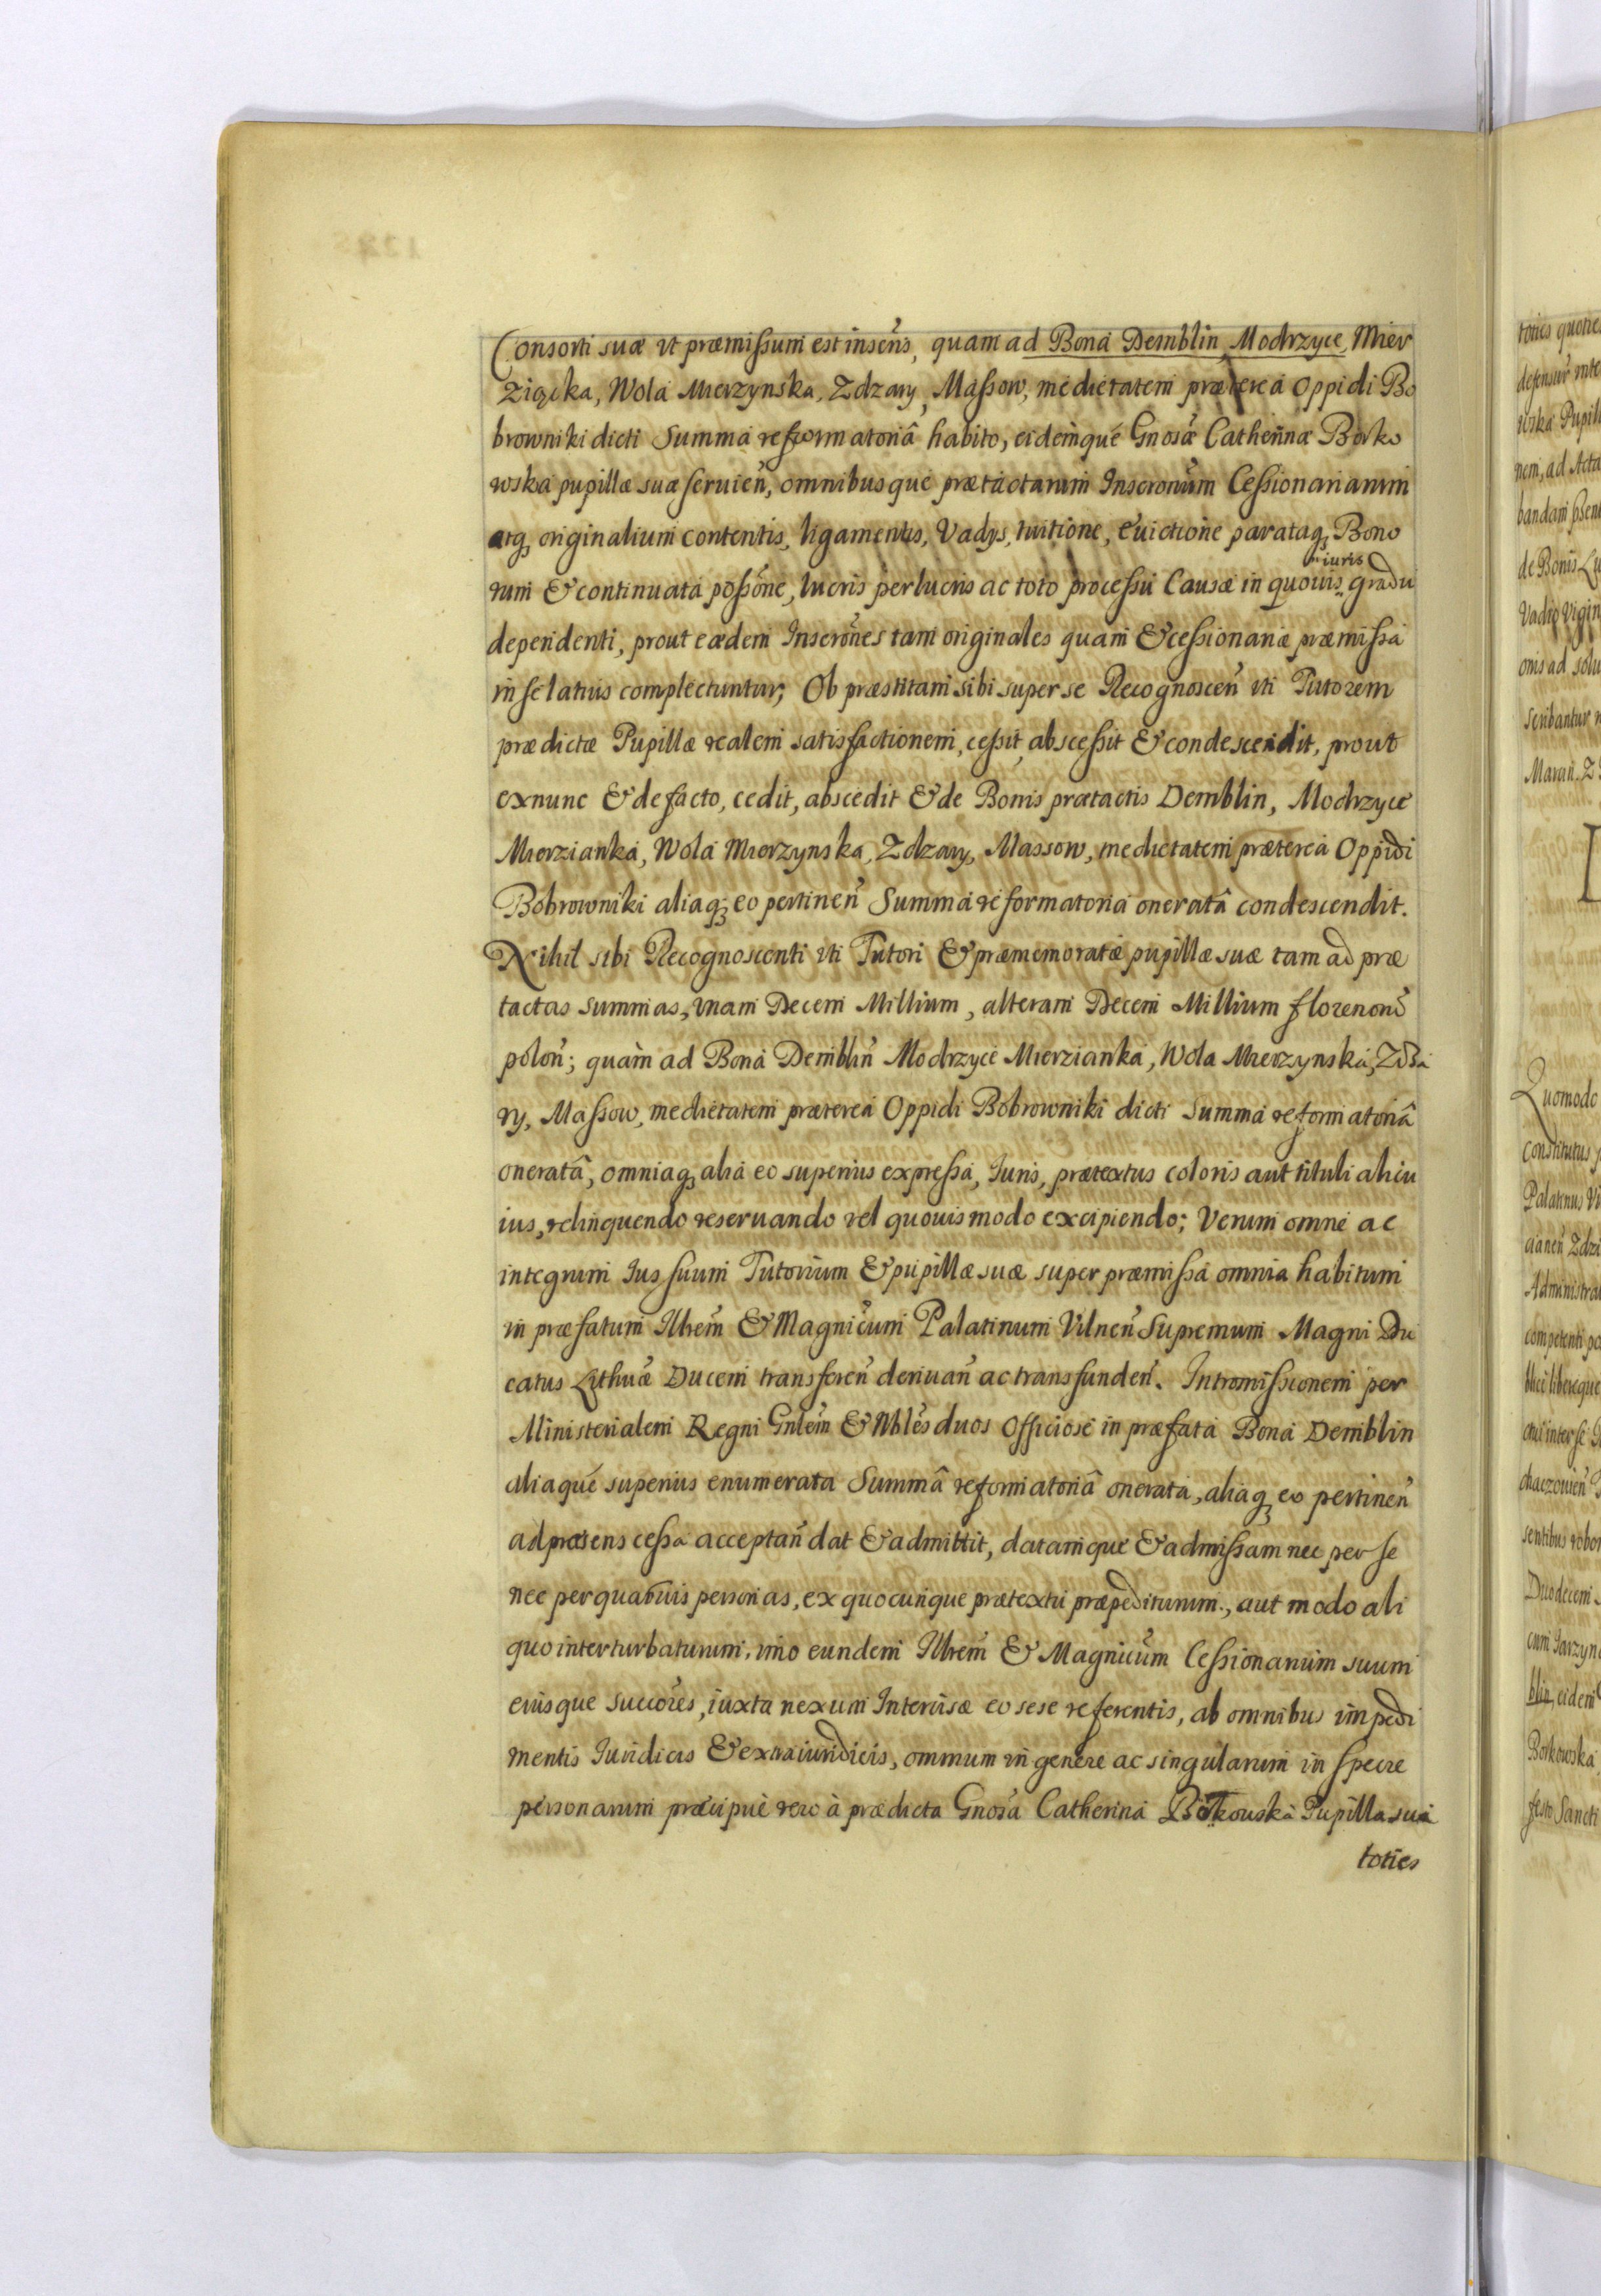 Consorti suæ vt præmissum est inserẽs, quam ad Bona Demblin Modrzyce, Mier
ziącka, Wola Mierzynska, Zdzary, Massow, medietatem præterea Oppidi Bo
browniki dicti Summa reformatoriâ habito, eidemqué Gnosæ Catherinæ Borko
wska pupillæ suæ seruień, omnibusque prætactarum Inscronũm Cessionariarum
atq; originalium contentis, ligamentis, Vadys, tuitione, euictione parataq; Bono
rum & continuata possõne, lucris perlucris ac toto processu Causæ in quouis iuris gradu
dependenti, prout eædem Inscrõnes tam originales quam & cessionariæ præmissa
in se latius complectuntur; Ob præstitam sibi super se Recognosceñ vti Tutorem
prædictæ Pupillæ realem satisfactionem, cessit, abscessit & condescendit, prout
exnunc & de facto, cedit, abscedit & de Bonis prætactis Demblin, Modrzyce
Mierzianka, Wola Mierzynska, Zdzary, Massow, medietatem præterea Oppidi
Bobrowniki aliaq; eo pertineñ Summa reformatoria oneratâ condescendit.
Nihil sibi Recognoscenti vti Tutori & præmemoratæ pupillæ suæ tam ad præ
tactas summas, vnam Decem Millium, alteram Decem Millium florenorũ
poloń; quàm ad Bona Demblin Modrzyce Mierzianka, Wola Mierzynska, Zdza
ry, Massow, medietatem præterea Oppidi Bobrowniki dicti Summa reformatoriâ
oneratâ, omniaq; alia eo superius expressa, Iuris, prætextus coloris aut tituli alicu
ius, relinquendo reseruando vel quouismodo excipiendo; Verum omne ac
integrum Ius suum Tutorium & pupillæ suæ super præmissa omnia habitum
in præfatum Illrem & Magnicum Palatinum Vilneñ Supremum Magni Du
catus Lithuæ Ducem transfereñ deriuañ ac transfundeñ. Intromissionem per
Ministerialem Regni Gnlem & Nbles duos Officiosè in præfata Bona Demblin
aliaqué superius enumerata Summâ reformatoriâ onerata, aliaq; eo pertineñ
ad præsens cessa acceptañ dat & admittit, datamque & admissam nec per se
nec per quasuis personas, ex quocunque prætextu præpediturum., aut modo ali
quo interturbaturum, imo eundem Illrem & Magnicũm Cessionarium suum
eiusque succores, iuxta nexum Intercisæ eo sese referentis, ab omnibus impedi
mentis Iuridicis & extraiuridicis, omnium in genere ac singularum in specie
personarum præcipuè vero à prædicta Gnosa Catherina Borkowska Pupilla sua
toties